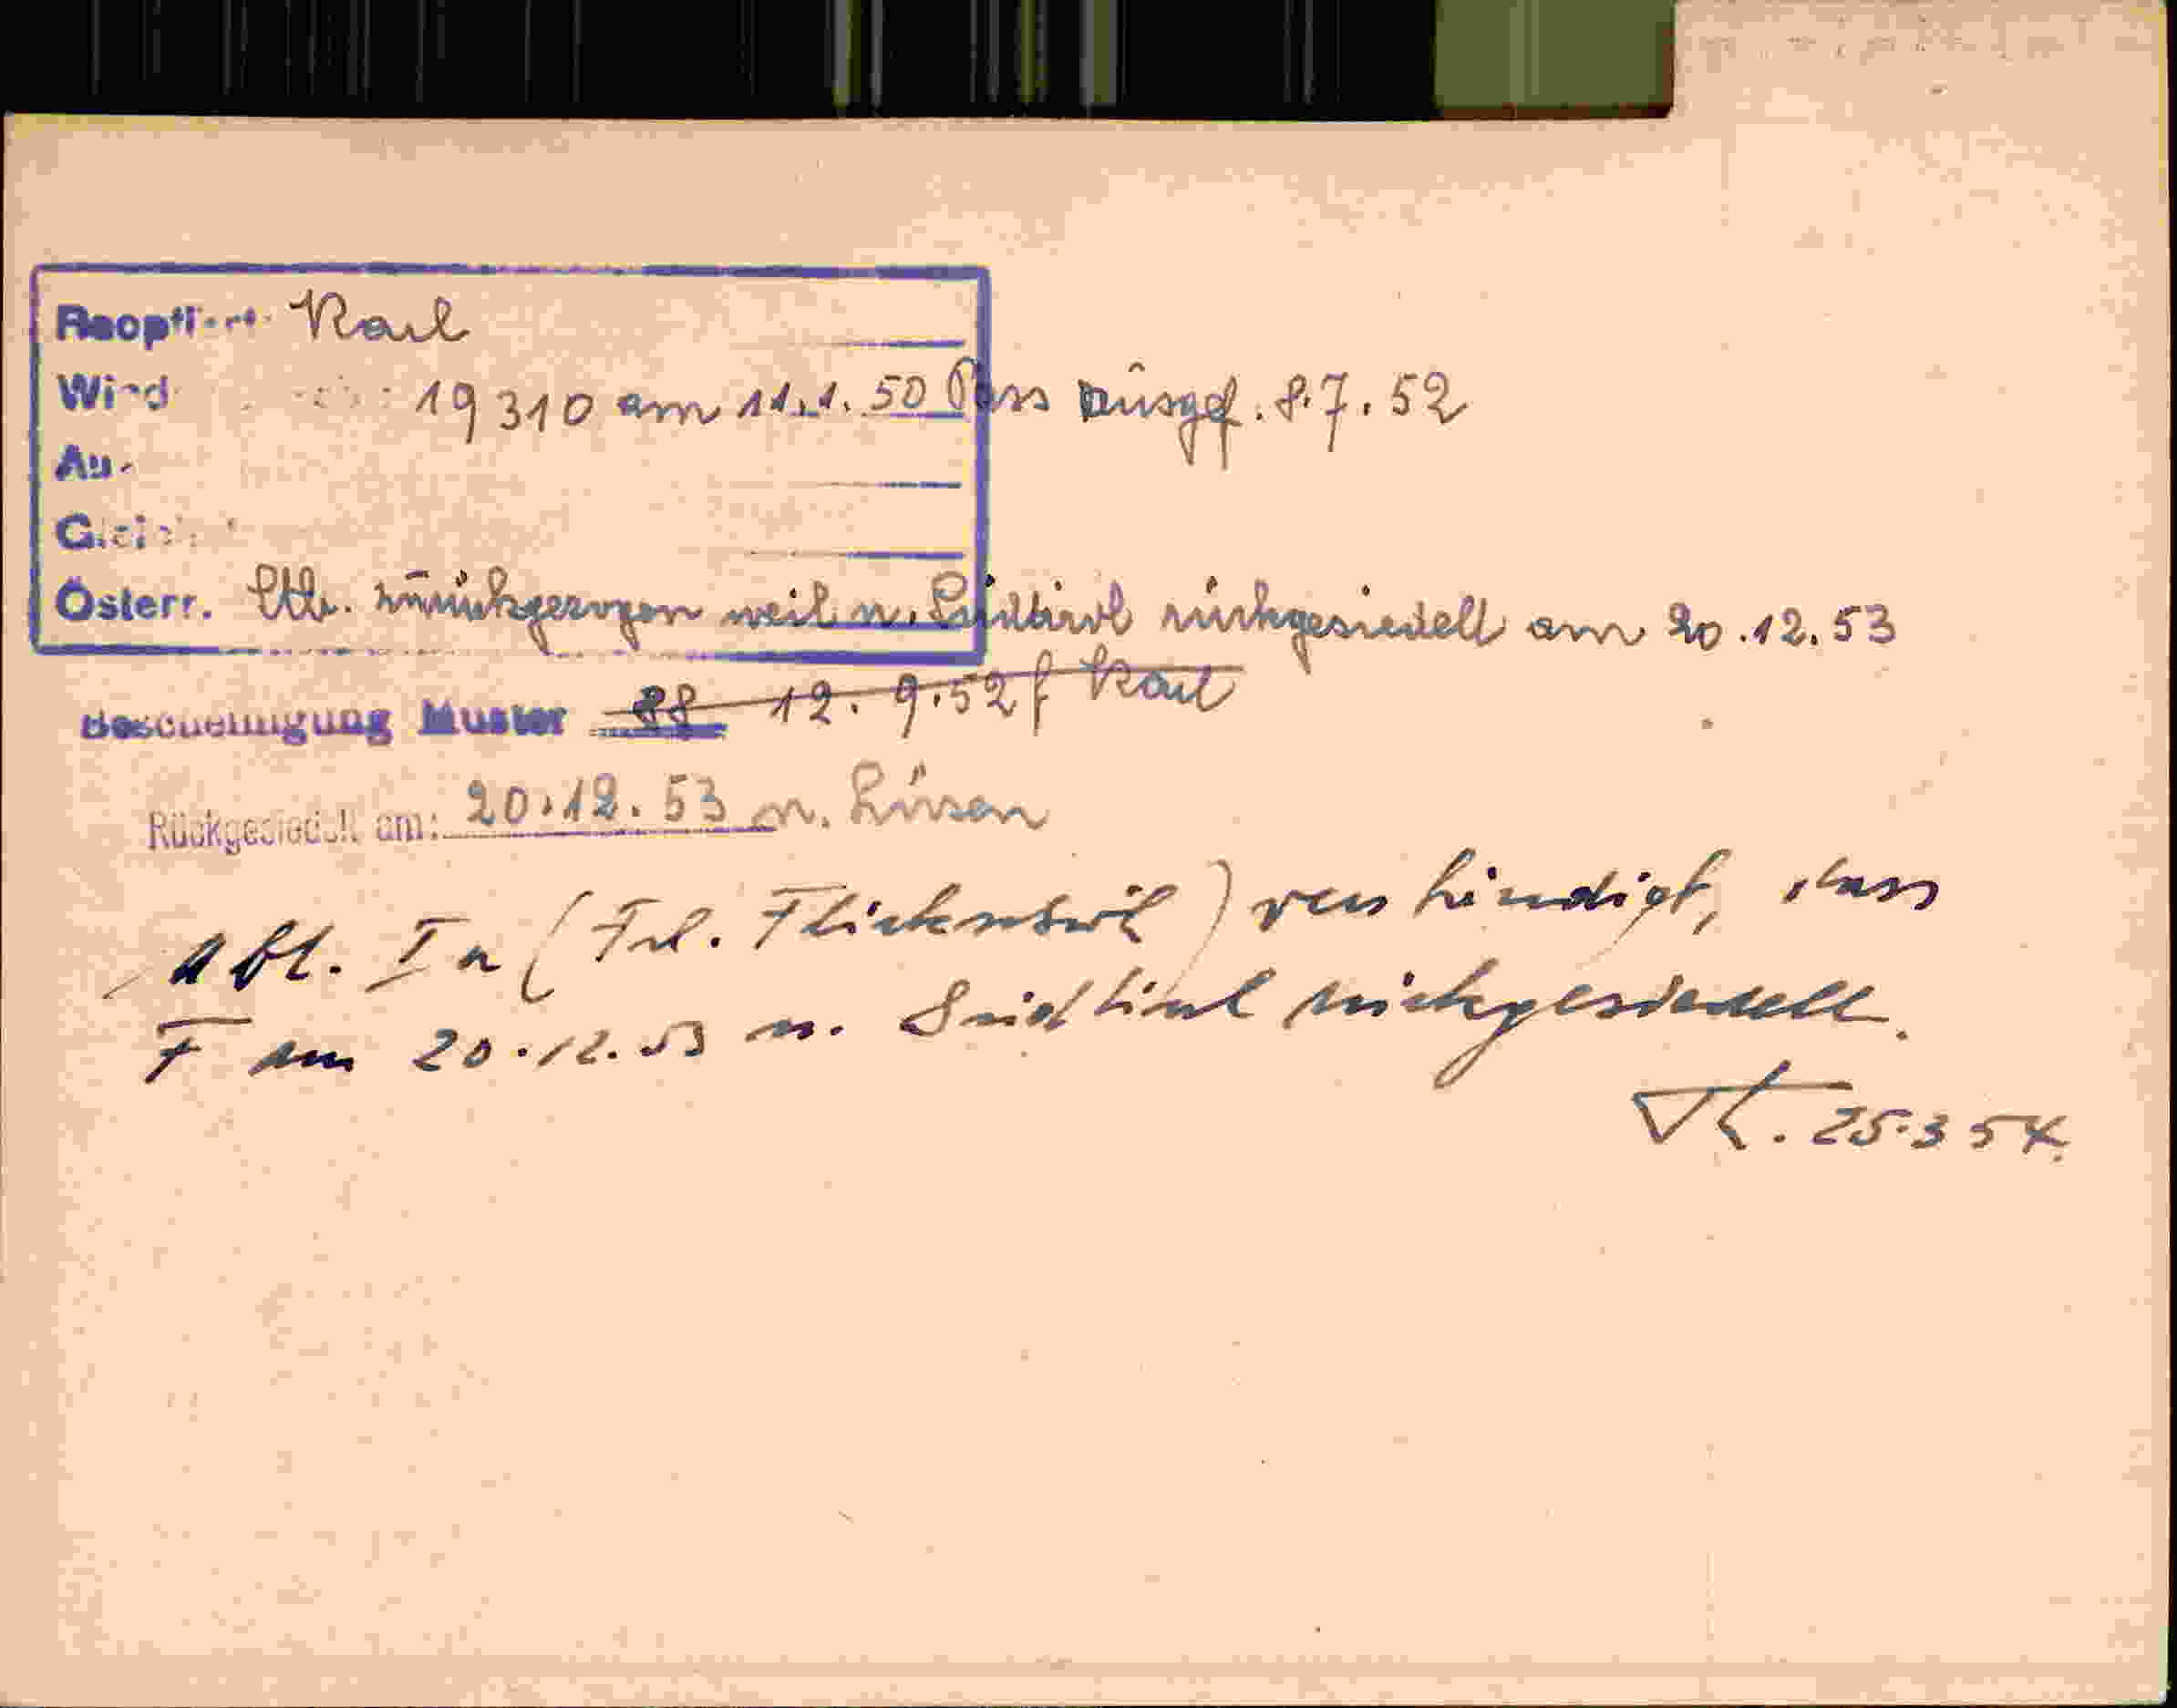 Reoptiert: Rail
Wird 19310 am 11.1.50 Pass ausgef. 8.7.52
Au
Gleich
Österr. Stb. zurückgezogen weil n. Südtirol rückgesiedelt am 20.12.53
Bescheinigung Muster 88 12.9.52 f Rail
Rückgesiedelt am: 20.12.53 n. Lüsen
Abt. I a (Frl. ) verständigt, dass
F am 20.12.53 n. Südtirol rückgesiedelt.
25.3.54.